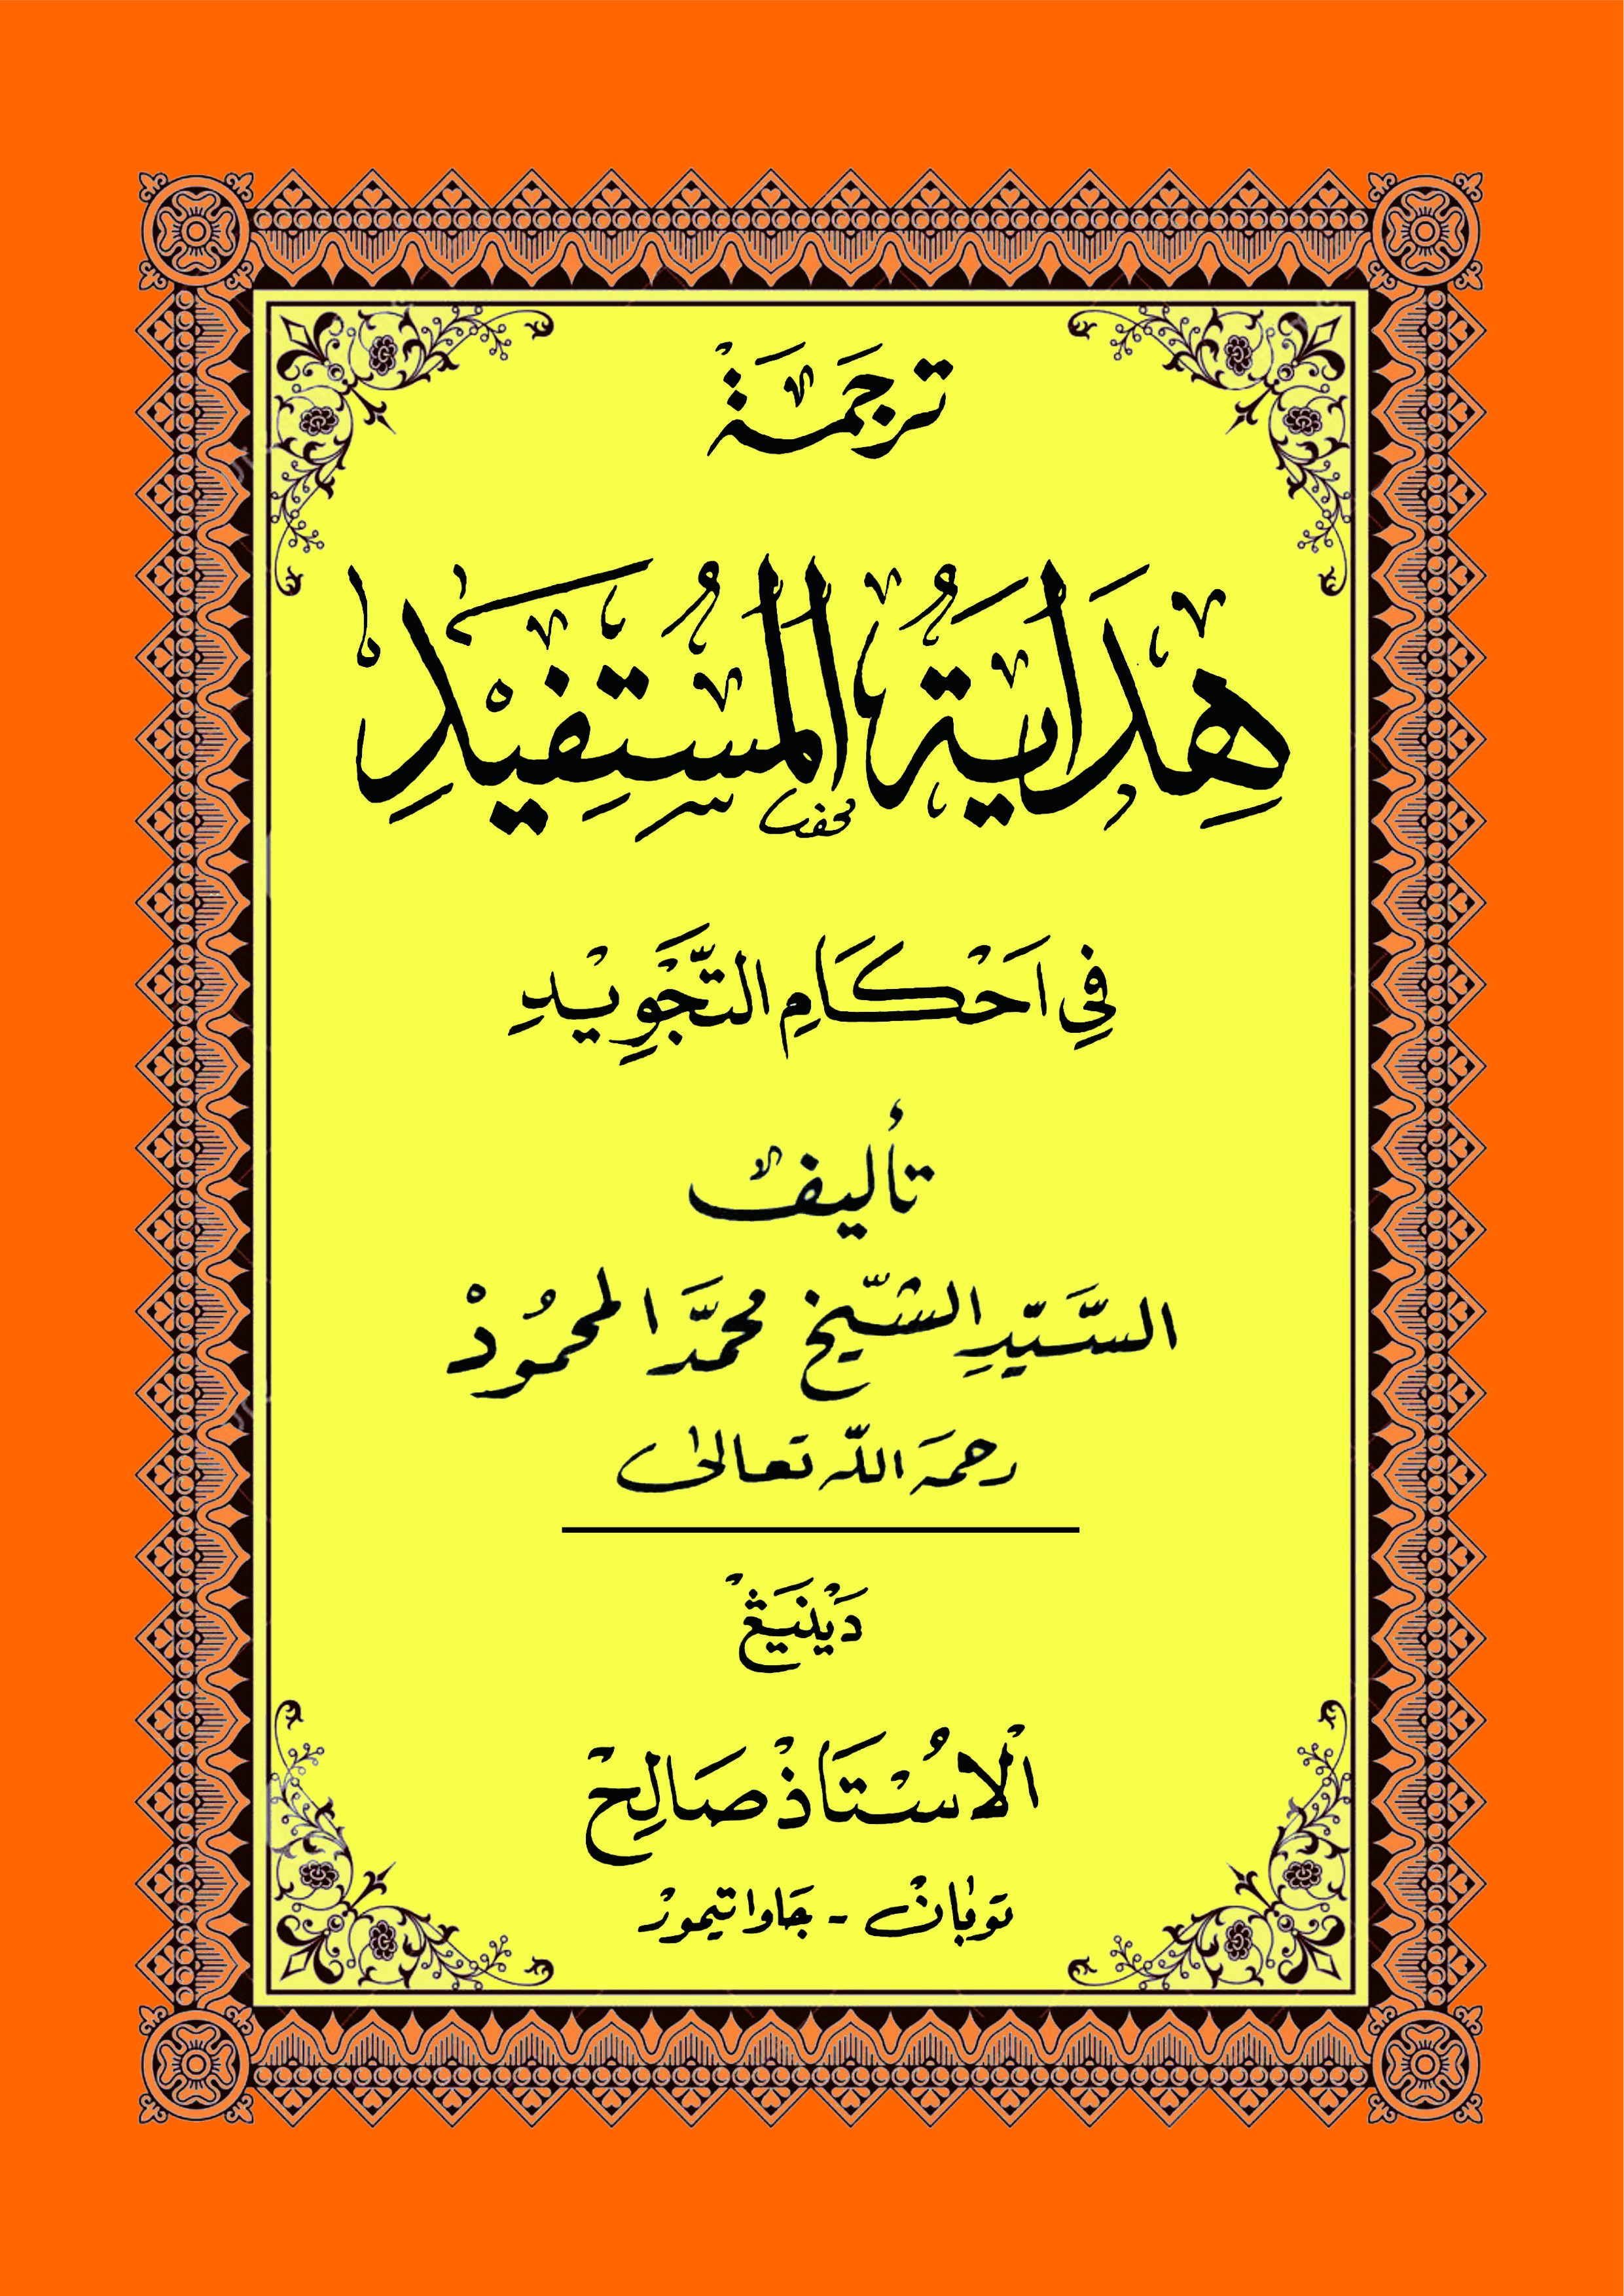 تَرْجَمَةْ
هِدَايَةُ الْمُسْتَفِيْدِ
فِي اَحْكَامِ التَّجْوِيْدِ
تأليف
السَّيِّدِ الشَّيْخ محمَّد المحمُودْ
رحمَه اللّه تَعالىٰ
دَيْنَيْڠْ
اَلْاُسْتَاذْ صَالِحْ
توبٰانْ - جَاوا تيمورْ